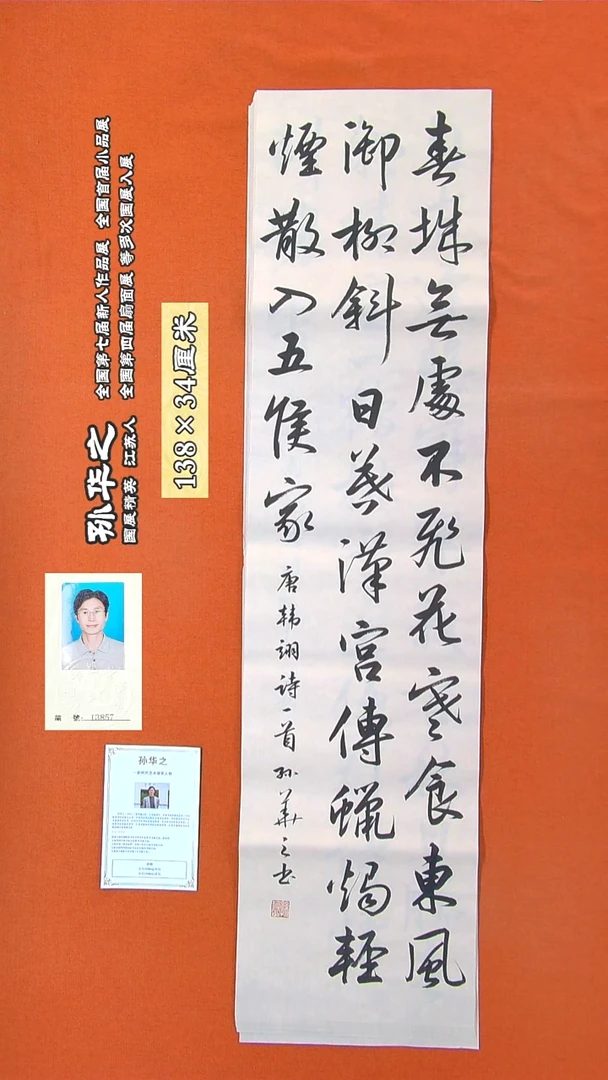 春城無處不飛花寒食東風
御柳斜日暮漢宮傳蠟燭輕
煙散入五侯家
唐韩翃诗一首 孙華之书
全国第七届新人作品展 全国首届小品展
全国第四届扇面展 等多次国展入展
孙华之
国展精英 江苏人
138×34厘米
编 號: 13857
孙华之